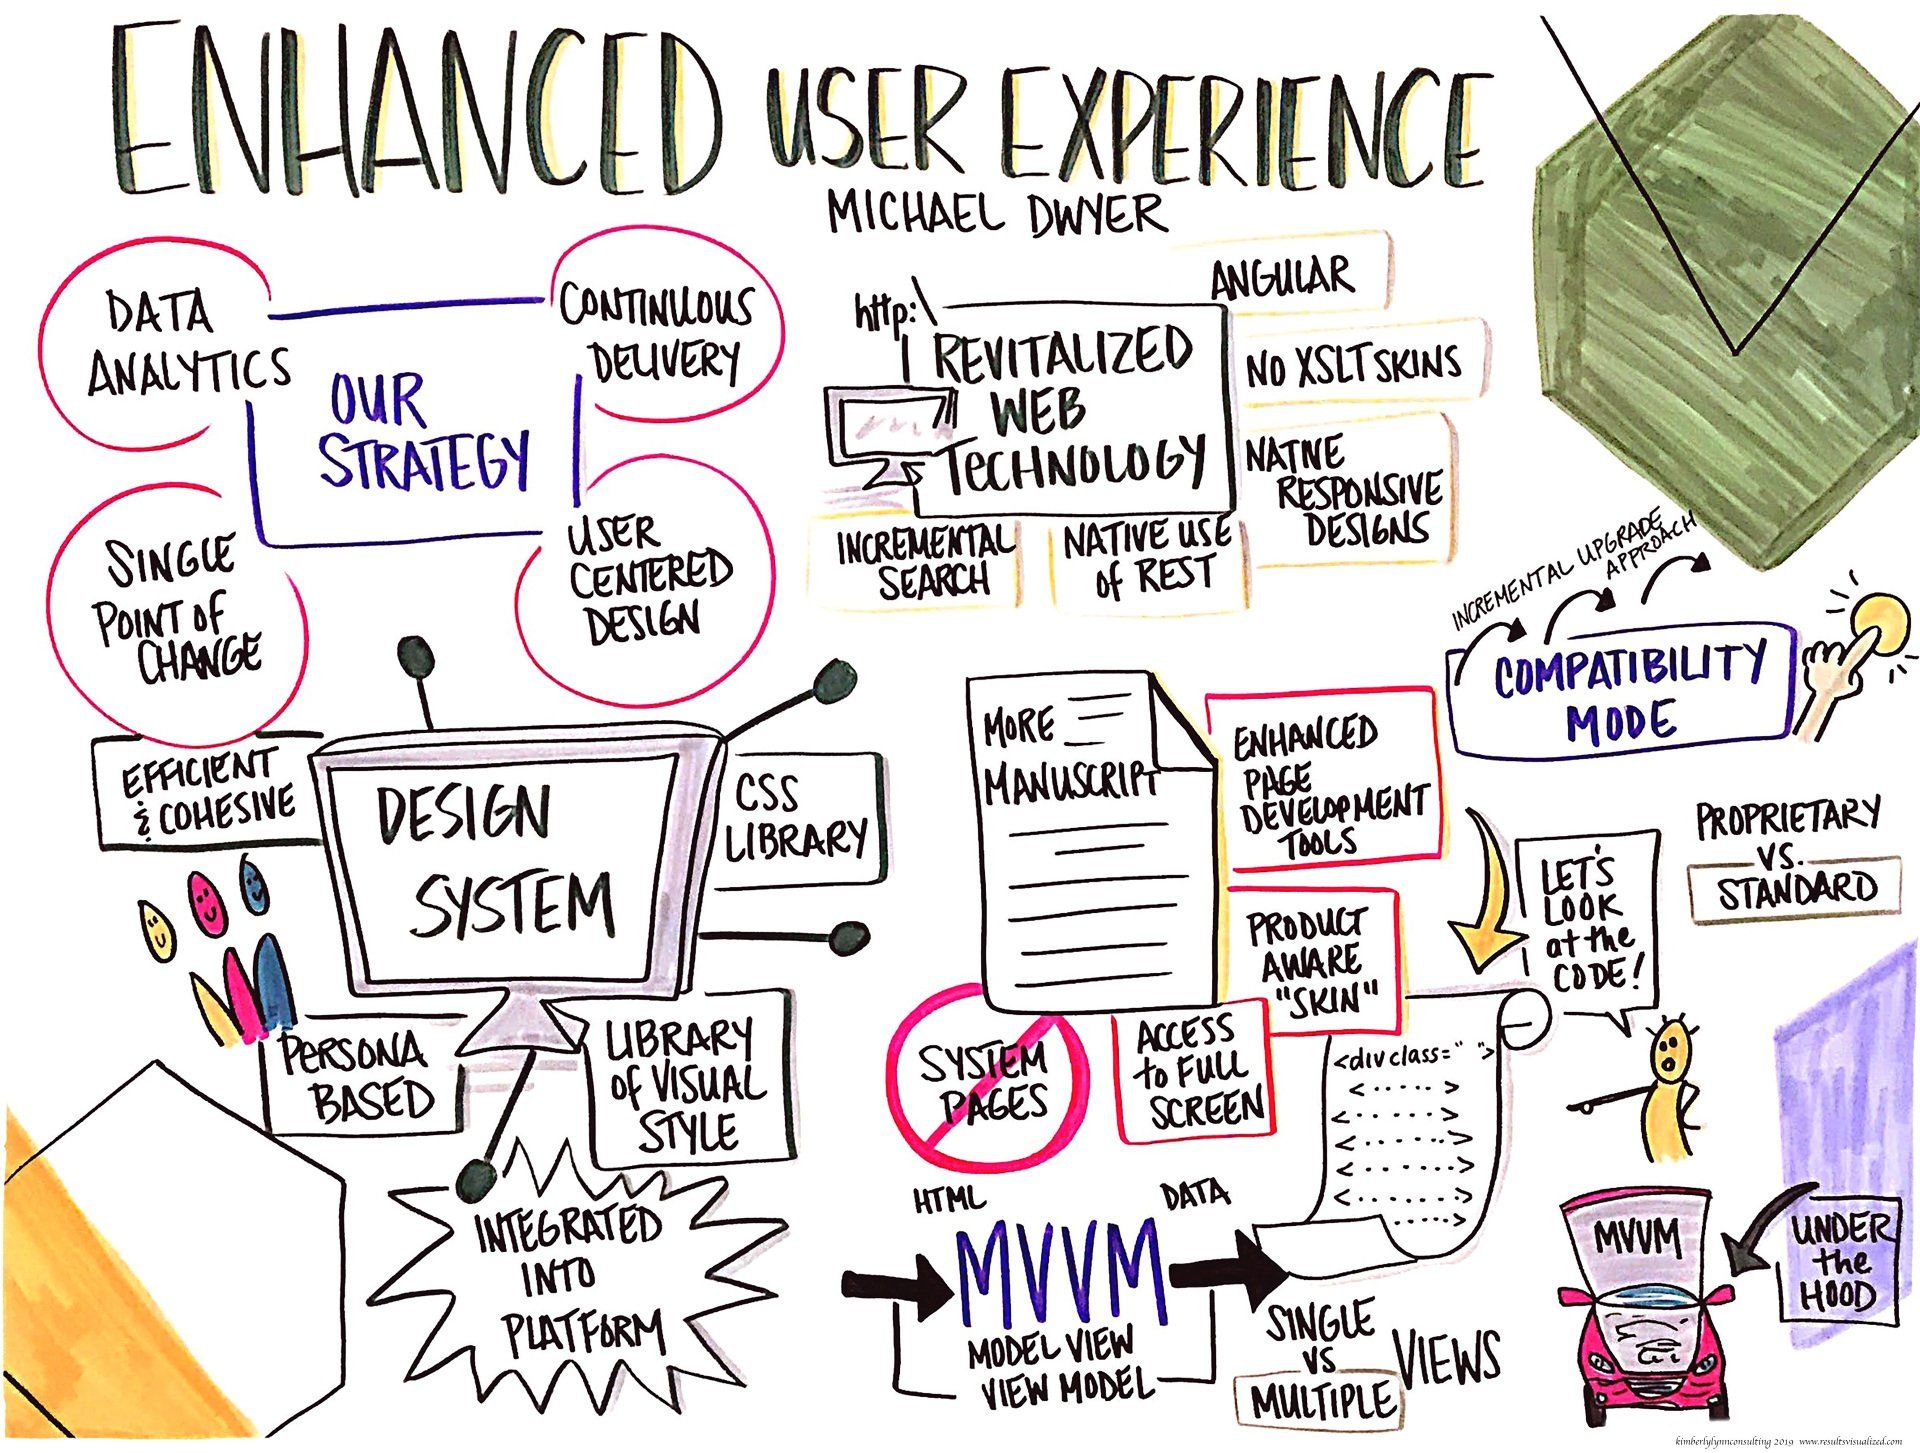 ENHANCED USER EXPERIENCE
MICHAEL DWYER
DATA
ANALYTICS
CONTINUOUS
DELIVERY
OUR
STRATEGY
SINGLE
POINT OF
CHANGE
USER
CENTERED
DESIGN
http:\
REVITALIZED
WEB
TECHNOLOGY
ANGULAR
NO XSLT SKINS
NATIVE
RESPONSIVE
DESIGNS
INCREMENTAL
SEARCH
NATIVE USE
of REST
INCREMENTAL UPGRADE
APPROACH
COMPATIBILITY
MODE
EFFICIENT
& COHESIVE
DESIGN
SYSTEM
CSS
LIBRARY
PERSONA
BASED
LIBRARY
of VISUAL
STYLE
INTEGRATED
INTO
PLATFORM
MORE
MANUSCRIPT
ENHANCED
PAGE
DEVELOPMENT
TOOLS
PRODUCT
AWARE
"SKIN"
SYSTEM
PAGES
ACCESS
to FULL
SCREEN
<div class=" ">
<......>
<......>
<......>
<......>
<......>
...>
LET'S
LOOK
at the
CODE!
PROPRIETARY
VS.
STANDARD
HTML
DATA
MVVM
MODEL VIEW
VIEW MODEL
SINGLE
VS
MULTIPLE
VIEWS
MVVM
UNDER
the
HOOD
kimberlylynnconsulting 2019 www.resultsvisualized.com